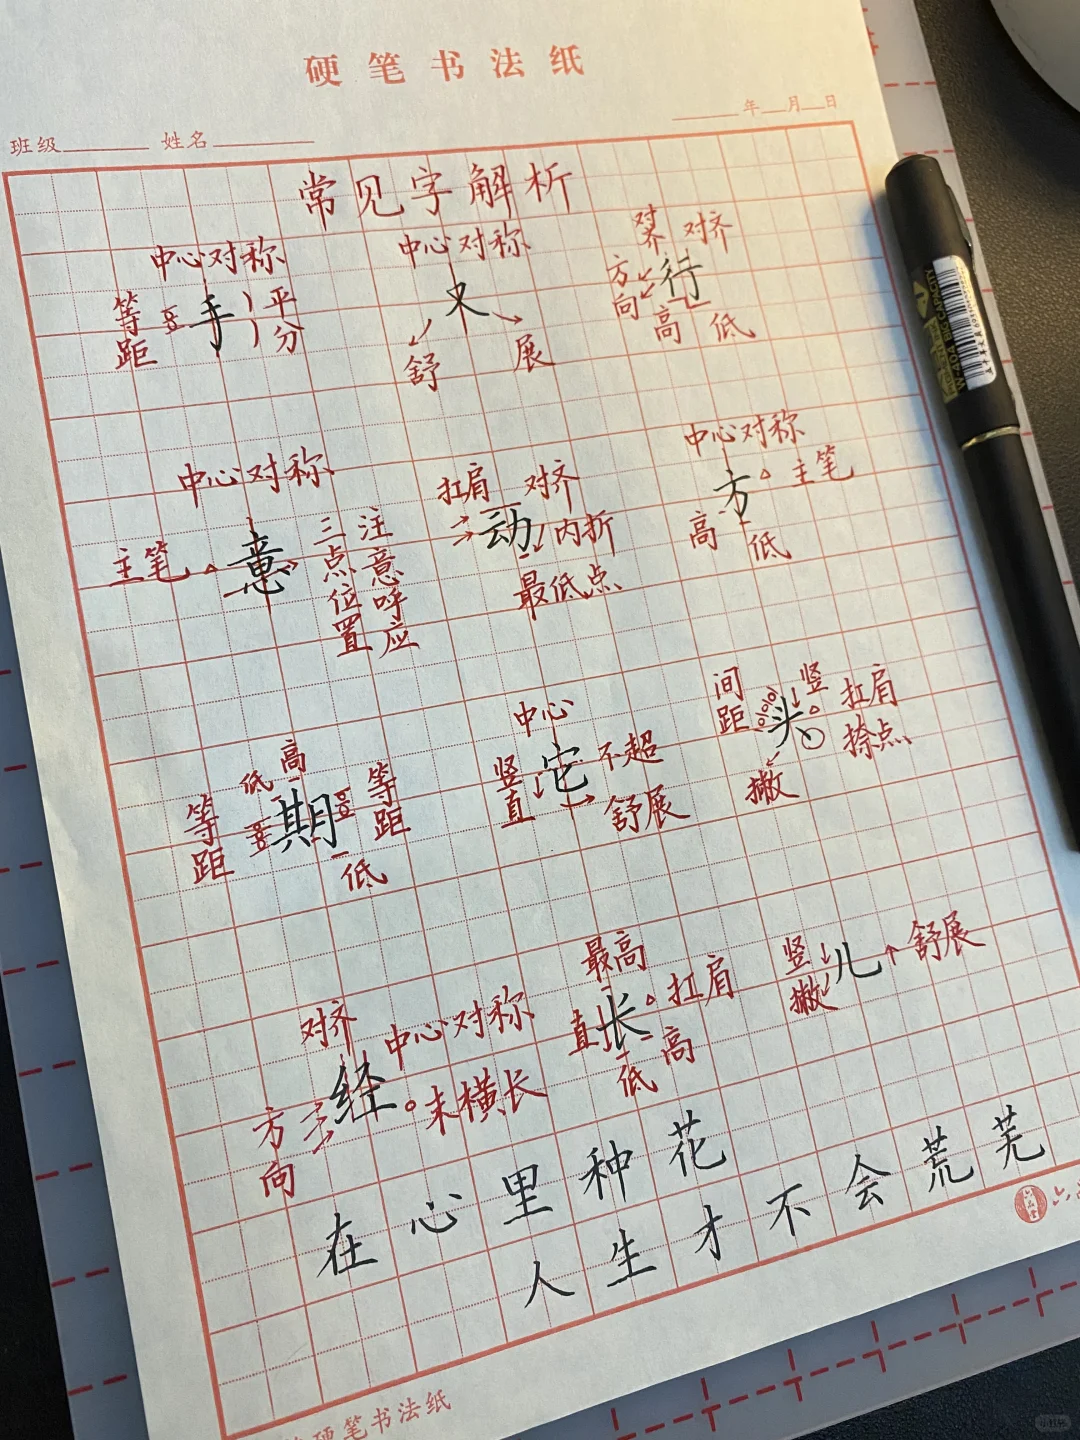 硬笔书法纸
年 月 日
班级 姓名
常见字解析
中心对称
等距
手
平分
中心对称
又
舒
展
对齐 对齐
方向
行
高 低
中心对称
主笔
意
三点位置
注意呼应
扛肩 对齐
动
内折
最低点
中心对称
方
主笔
高 低
低 高
等距
期
等距
低
中心
竖直
它
不超
舒展
间距
竖
头
扛肩
捺点
撇
对齐 中心对称
方向
经
末横长
最高
直
长
扛肩
低 高
竖撇
儿
舒展
在心里种花
人生才不会荒芜
硬笔书法纸